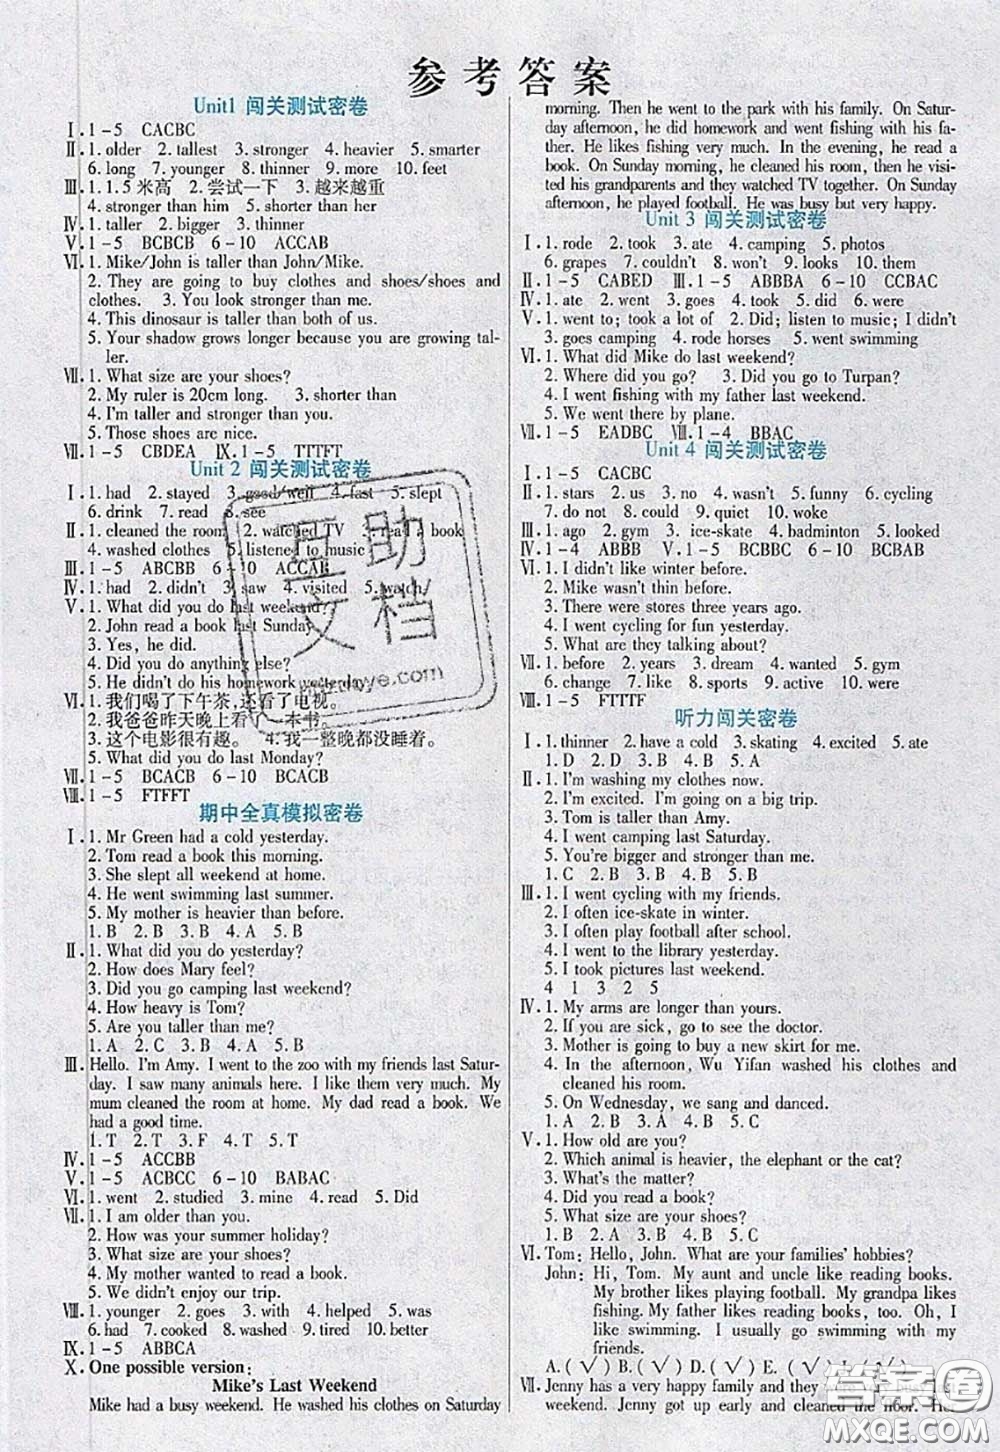 参考答案
Unit1 闯关测试密卷
Ⅰ. 1-5 CACBC
Ⅱ. 1. older 2. tallest 3. stronger 4. heavier 5. smarter
6. long 7. younger 8. thinner 9. more 10. feet
Ⅲ. 1. 1.5米高 2. 尝试一下 3. 越来越重
4. stronger than him 5. shorter than her
Ⅳ. 1. taller 2. bigger 3. thinner
Ⅴ. 1-5 BCBCB 6-10 ACCAB
Ⅵ. 1. Mike/John is taller than John/Mike.
2. They are going to buy clothes and shoes/shoes and
clothes. 3. You look stronger than me.
4. This dinosaur is taller than both of us.
5. Your shadow grows longer because you are growing tal-
ler.
Ⅶ. 1. What size are your shoes?
2. My ruler is 20cm long. 3. shorter than
4. I'm taller and stronger than you.
5. Those shoes are nice.
Ⅷ. 1-5 CBDEA Ⅸ. 1-5 TTTFT
Unit 2 闯关测试密卷
Ⅰ. 1. had 2. stayed 3. good/well 4. fast 5. slept
6. drink 7. read 8. see
Ⅱ. 1. cleaned the room 2. watched TV 3. read a book
4. washed clothes 5. listened to music
Ⅲ. 1-5 ABCBB 6-10 ACCAB
Ⅳ. 1. had 2. didn't 3. saw 4. visited 5. watch
Ⅴ. 1. What did you do last weekend?
2. John read a book last Sunday.
3. Yes, he did.
4. Did you do anything else?
5. He didn't do his homework yesterday.
Ⅵ. 1. 我们喝了下午茶,还看了电视。
2. 我爸爸昨天晚上看了一本书。
3. 这个电影很有趣。 4. 我一整晚都没睡着。
5. What did you do last Monday?
Ⅶ. 1-5 BCACB 6-10 BCACB
Ⅷ. 1-5 FTFFT
期中全真模拟密卷
Ⅰ. 1. Mr Green had a cold yesterday.
2. Tom read a book this morning.
3. She slept all weekend at home.
4. He went swimming last summer.
5. My mother is heavier than before.
1. B 2. B 3. B 4. A 5. B
Ⅱ. 1. What did you do yesterday?
2. How does Mary feel?
3. Did you go camping last weekend?
4. How heavy is Tom?
5. Are you taller than me?
1. A 2. C 3. B 4. B 5. C
Ⅲ. Hello. I'm Amy. I went to the zoo with my friends last Satur-
day. I saw many animals here. I like them very much. My
mum cleaned the room at home. My dad read a book. We
had a good time.
1. T 2. T 3. F 4. T 5. T
Ⅳ. 1-5 ACCBB
Ⅴ. 1-5 ACBCC 6-10 BABAC
Ⅵ. 1. went 2. studied 3. mine 4. read 5. Did
Ⅶ. 1. I am older than you.
2. How was your summer holiday?
3. What size are your shoes?
4. My mother wanted to read a book.
5. We didn't enjoy our trip.
Ⅷ. 1. younger 2. goes 3. with 4. helped 5. was
6. had 7. cooked 8. washed 9. tired 10. better
Ⅸ. 1-5 ABBCA
Ⅹ. One possible version:
Mike's Last Weekend
Mike had a busy weekend. He washed his clothes on Saturday
morning. Then he went to the park with his family. On Satur-
day afternoon, he did homework and went fishing with his fa-
ther. He likes fishing very much. In the evening, he read a
book. On Sunday morning, he cleaned his room, then he visi-
ted his grandparents and they watched TV together. On Sunday
afternoon, he played football. He was busy but very happy.
Unit 3 闯关测试密卷
Ⅰ. 1. rode 2. took 3. ate 4. camping 5. photos
6. grapes 7. couldn't 8. won't 9. looks 10. them
Ⅱ. 1-5 CABED Ⅲ. 1-5 ABBBA 6-10 CCBAC
Ⅳ. 1. ate 2. went 3. goes 4. took 5. did 6. were
Ⅴ. 1. went to; took a lot of 2. Did; listen to music; I didn't
3. goes camping 4. rode horses 5. went swimming
Ⅵ. 1. What did Mike do last weekend?
2. Where did you go? 3. Did you go to Turpan?
4. I went fishing with my father last weekend.
5. We went there by plane.
Ⅶ. 1-5 EADBC Ⅷ. 1-4 BBAC
Unit 4 闯关测试密卷
Ⅰ. 1-5 CACBC
Ⅱ. 1. stars 2. us 3. no 4. wasn't 5. funny 6. cycling
7. do not 8. could 9. quiet 10. woke
Ⅲ. 1. ago 2. gym 3. ice-skate 4. badminton 5. looked
Ⅳ. 1-4 ABBB Ⅴ. 1-5 BCBBC 6-10 BCBAB
Ⅵ. 1. I didn't like winter before.
2. Mike wasn't thin before.
3. There were stores three years ago.
4. I went cycling for fun yesterday.
5. What are they talking about?
Ⅶ. 1. before 2. years 3. dream 4. wanted 5. gym
6. change 7. like 8. sports 9. active 10. were
Ⅷ. 1-5 FTTTF
听力闯关密卷
Ⅰ. 1. thinner 2. have a cold 3. skating 4. excited 5. ate
1. D 2. D 3. A 4. B 5. C
Ⅱ. 1. I'm washing my clothes now.
2. I'm excited. I'm going on a big trip.
3. Tom is taller than Amy.
4. I went camping last Saturday.
5. You're bigger and stronger than me.
1. C 2. B 3. B 4. A 5. B
Ⅲ. 1. I went cycling with my friends.
2. I often ice-skate in winter.
3. I often play football after school.
4. I went to the library yesterday.
5. I took pictures last weekend.
4 1 3 2 5
Ⅳ. 1. My arms are longer than yours.
2. If you are sick, go to see the doctor.
3. Mother is going to buy a new skirt for me.
4. In the afternoon, Wu Yifan washed his clothes and
cleaned his room.
5. On Wednesday, we sang and danced.
1. A 2. B 3. A 4. B 5. B
Ⅴ. 1. How old are you?
2. Which animal is heavier, the elephant or the cat?
3. What's the matter?
4. Did you read a book?
5. What size are your shoes?
1. B 2. C 3. B 4. A 5. C
Ⅵ. Tom: Hello, John. What are your families' hobbies?
John: Hi, Tom. My aunt and uncle like reading books.
My brother likes playing football. My grandpa likes
fishing. My father likes reading books, too. Oh, I
like swimming. I usually go swimming with my
friends.
A. (√) B. (√) D. (√) E. (√) (√)
Ⅶ. Jenny has a very happy family and they
weekend. Jenny got up early and cleaned the floor. Her
互助文档
答案圈
MXQE.COM